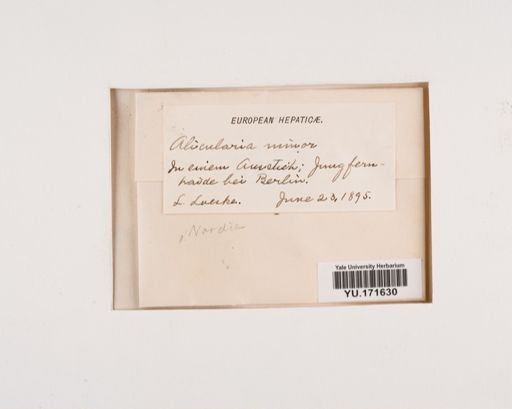 EUROPEAN HEPATICÆ.
Alicularia minor
In einem Ausstich; Jungfern-
haide bei Berlin.
L. Loeske. June 23, 1895.
Nardia
Yale University Herbarium
YU.171630